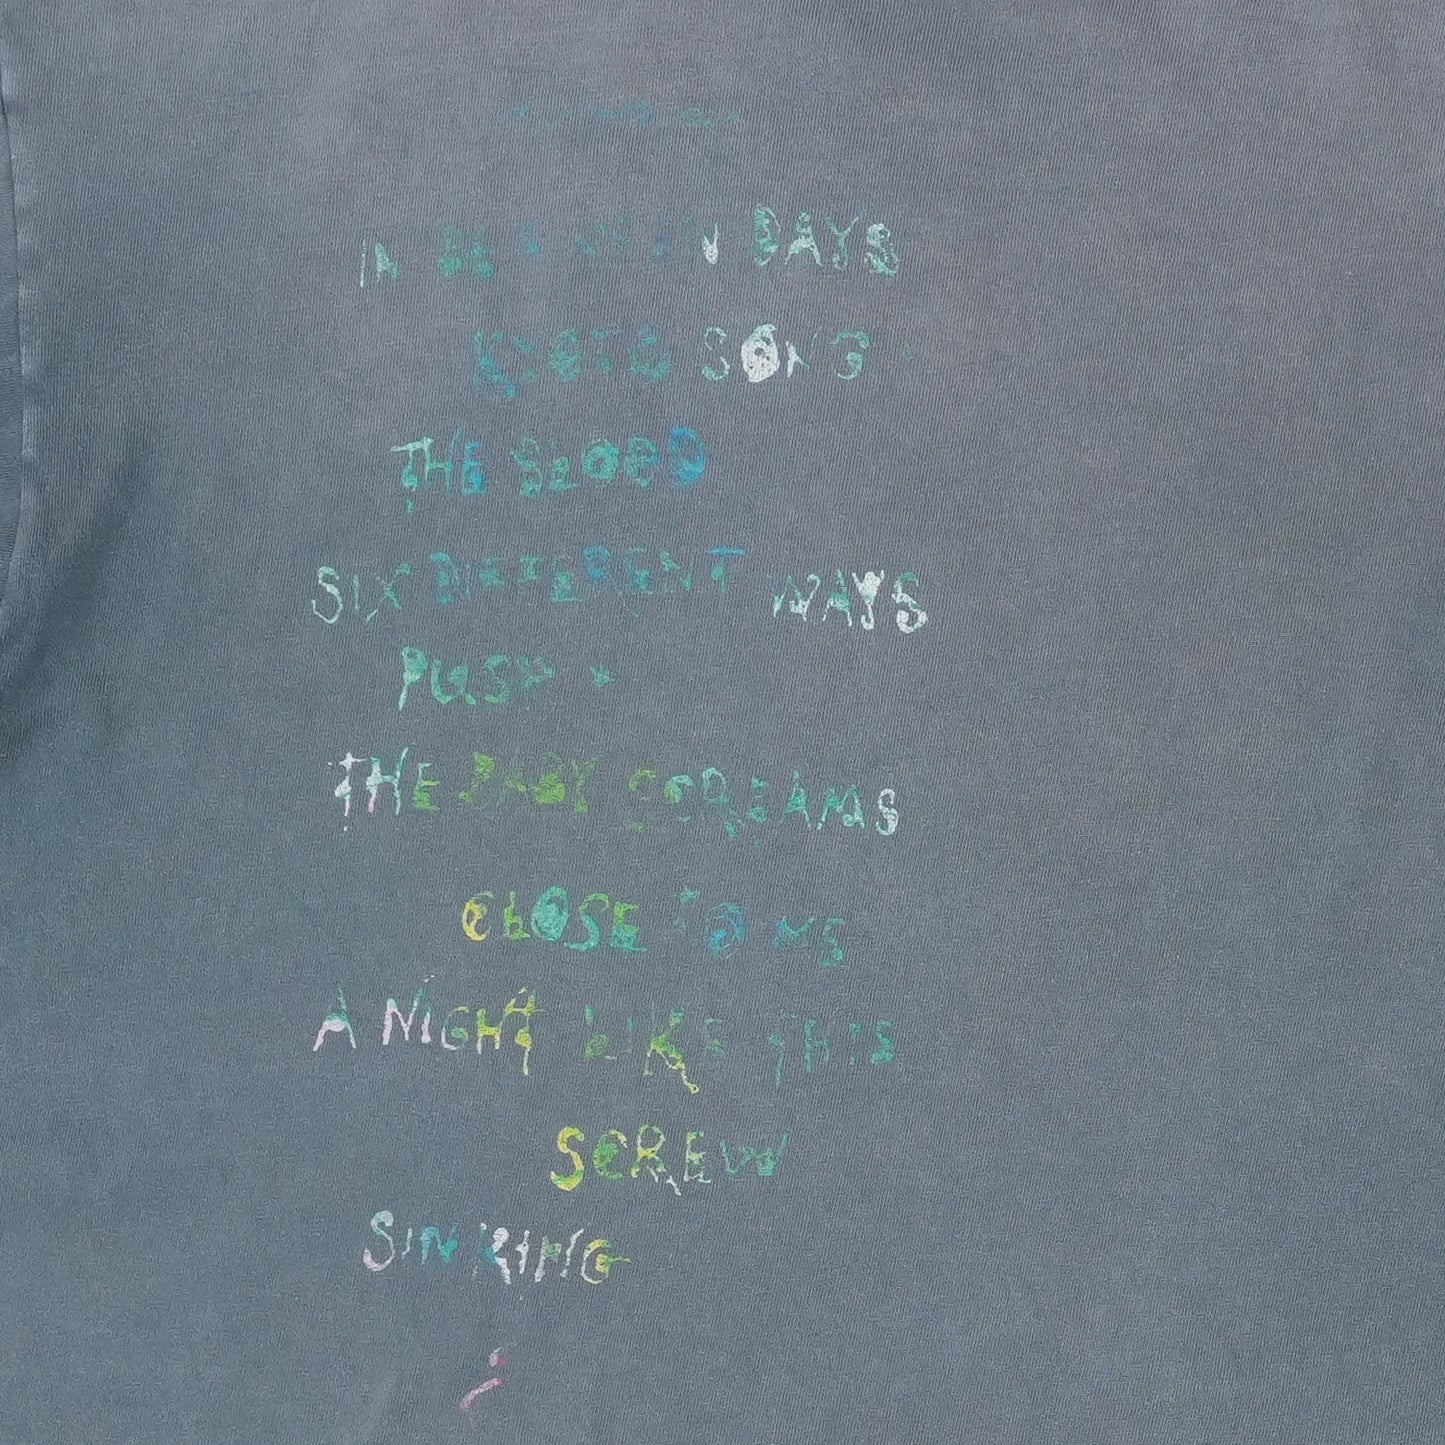 IN BETWEEN DAYS
KYOTO SONG
THE BLOOD
SIX DIFFERENT WAYS
PUSH
THE BABY SCREAMS
CLOSE TO ME
A NIGHT LIKE THIS
SCREW
SINKING